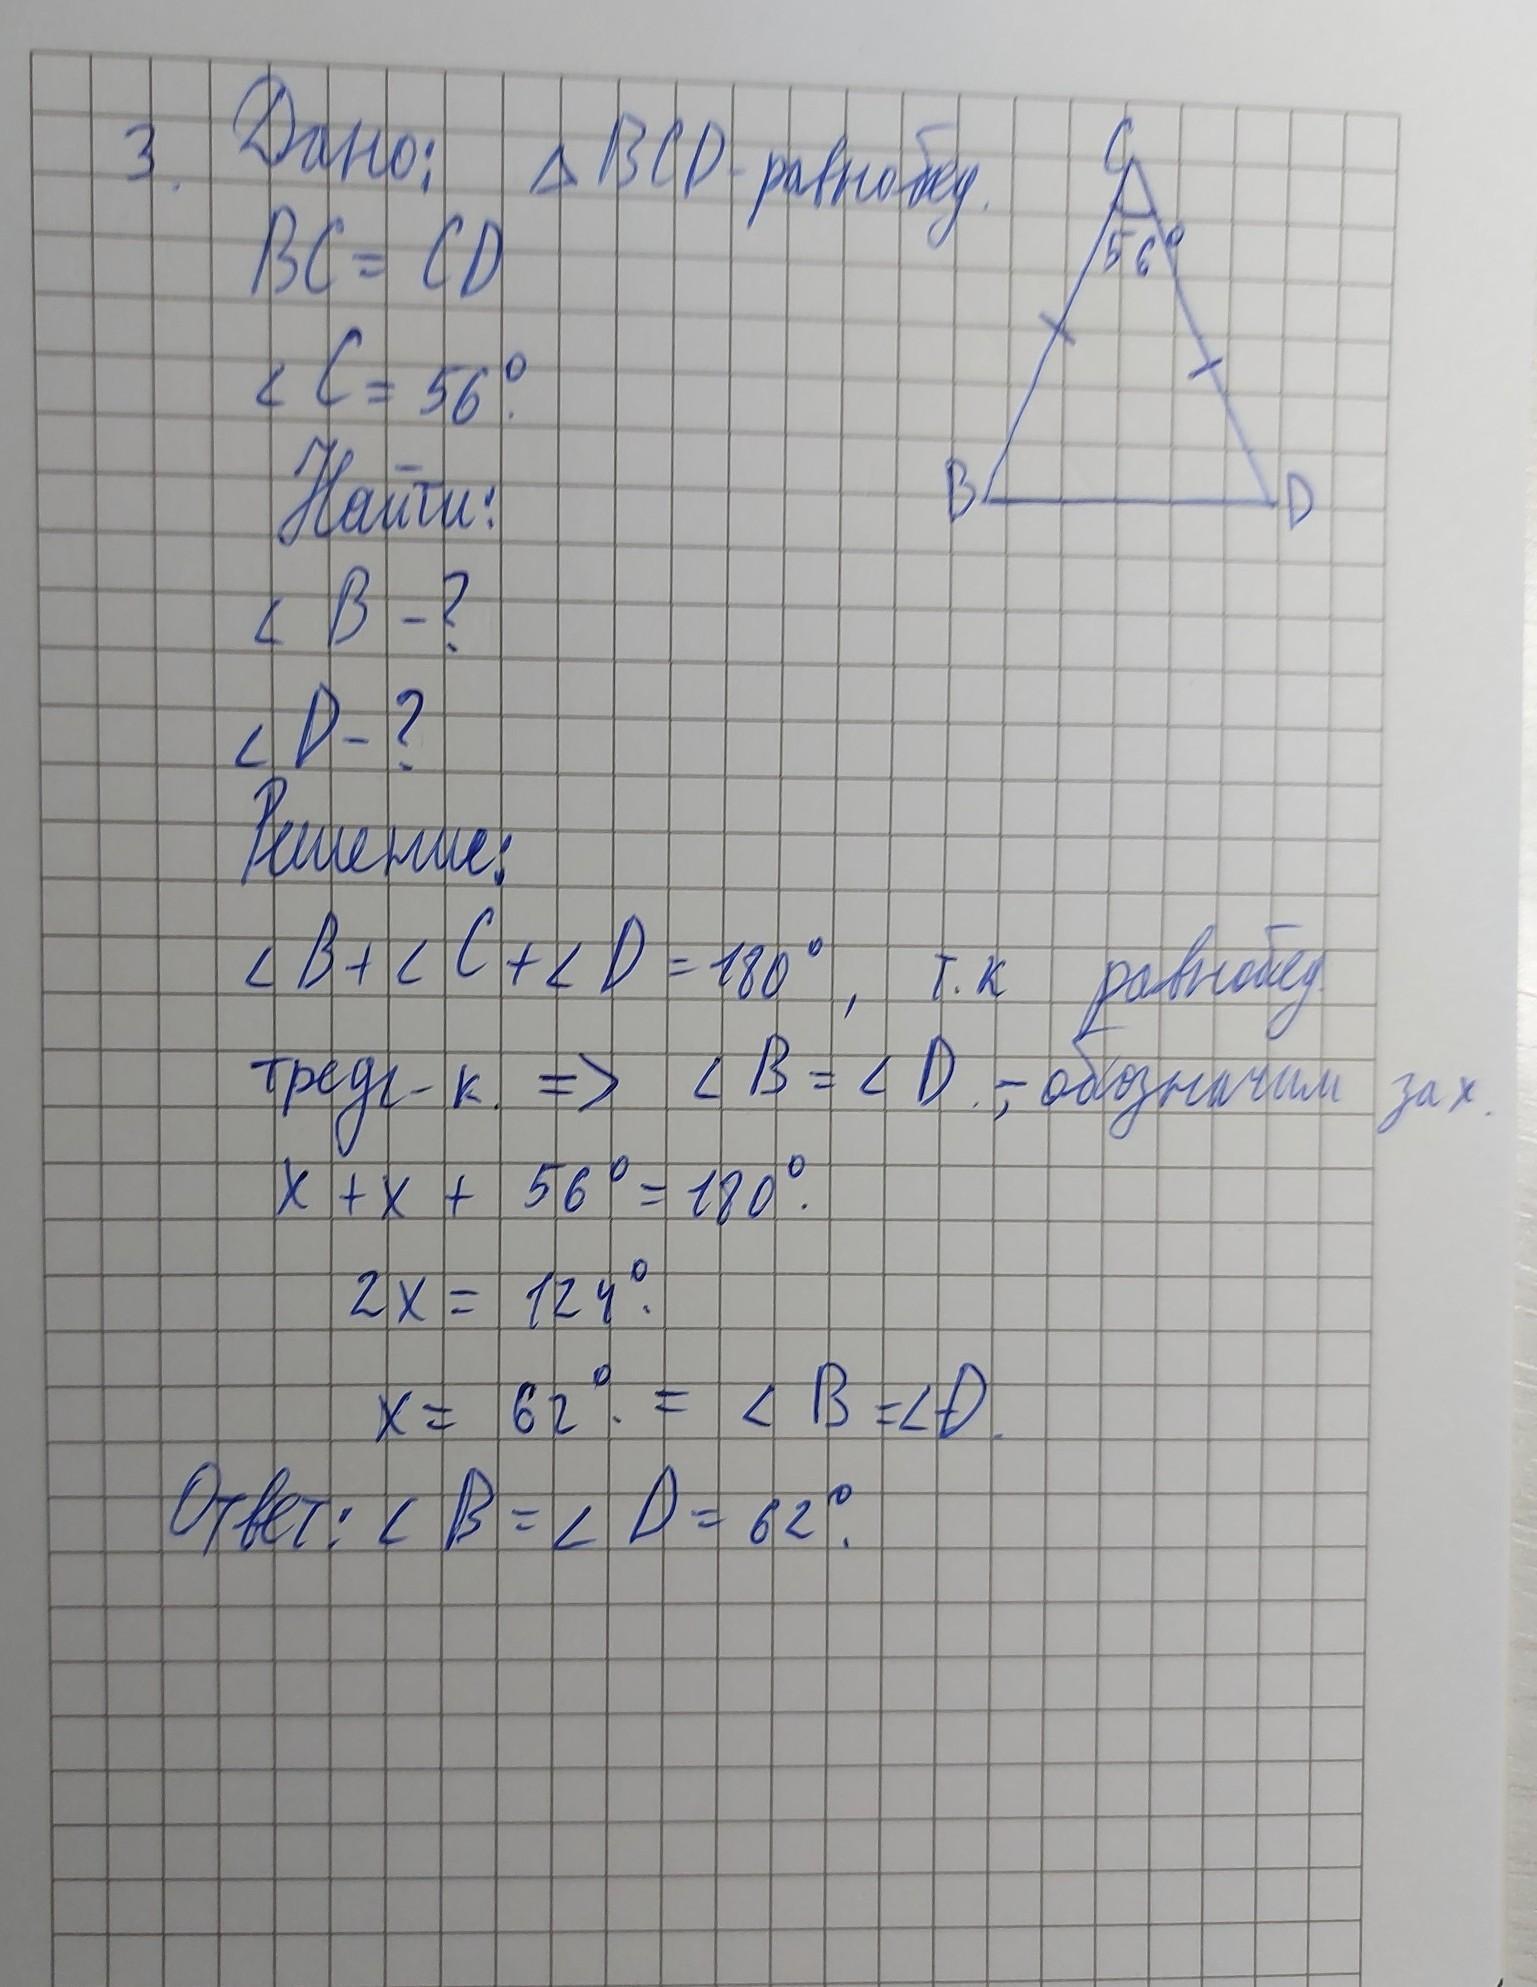 3. Дано: △ BCD - равнобед.
BC = CD
∠ C = 56°.
Найти:
∠ B - ?
∠ D - ?
Решение:
∠ B + ∠ C + ∠ D = 180°, т.к равнобед.
треуг-к. => ∠ B = ∠ D. - обозначим за x.
x + x + 56° = 180°.
2x = 124°.
x = 62°. = ∠ B = ∠ D.
Ответ: ∠ B = ∠ D = 62°.
C
56°
B D